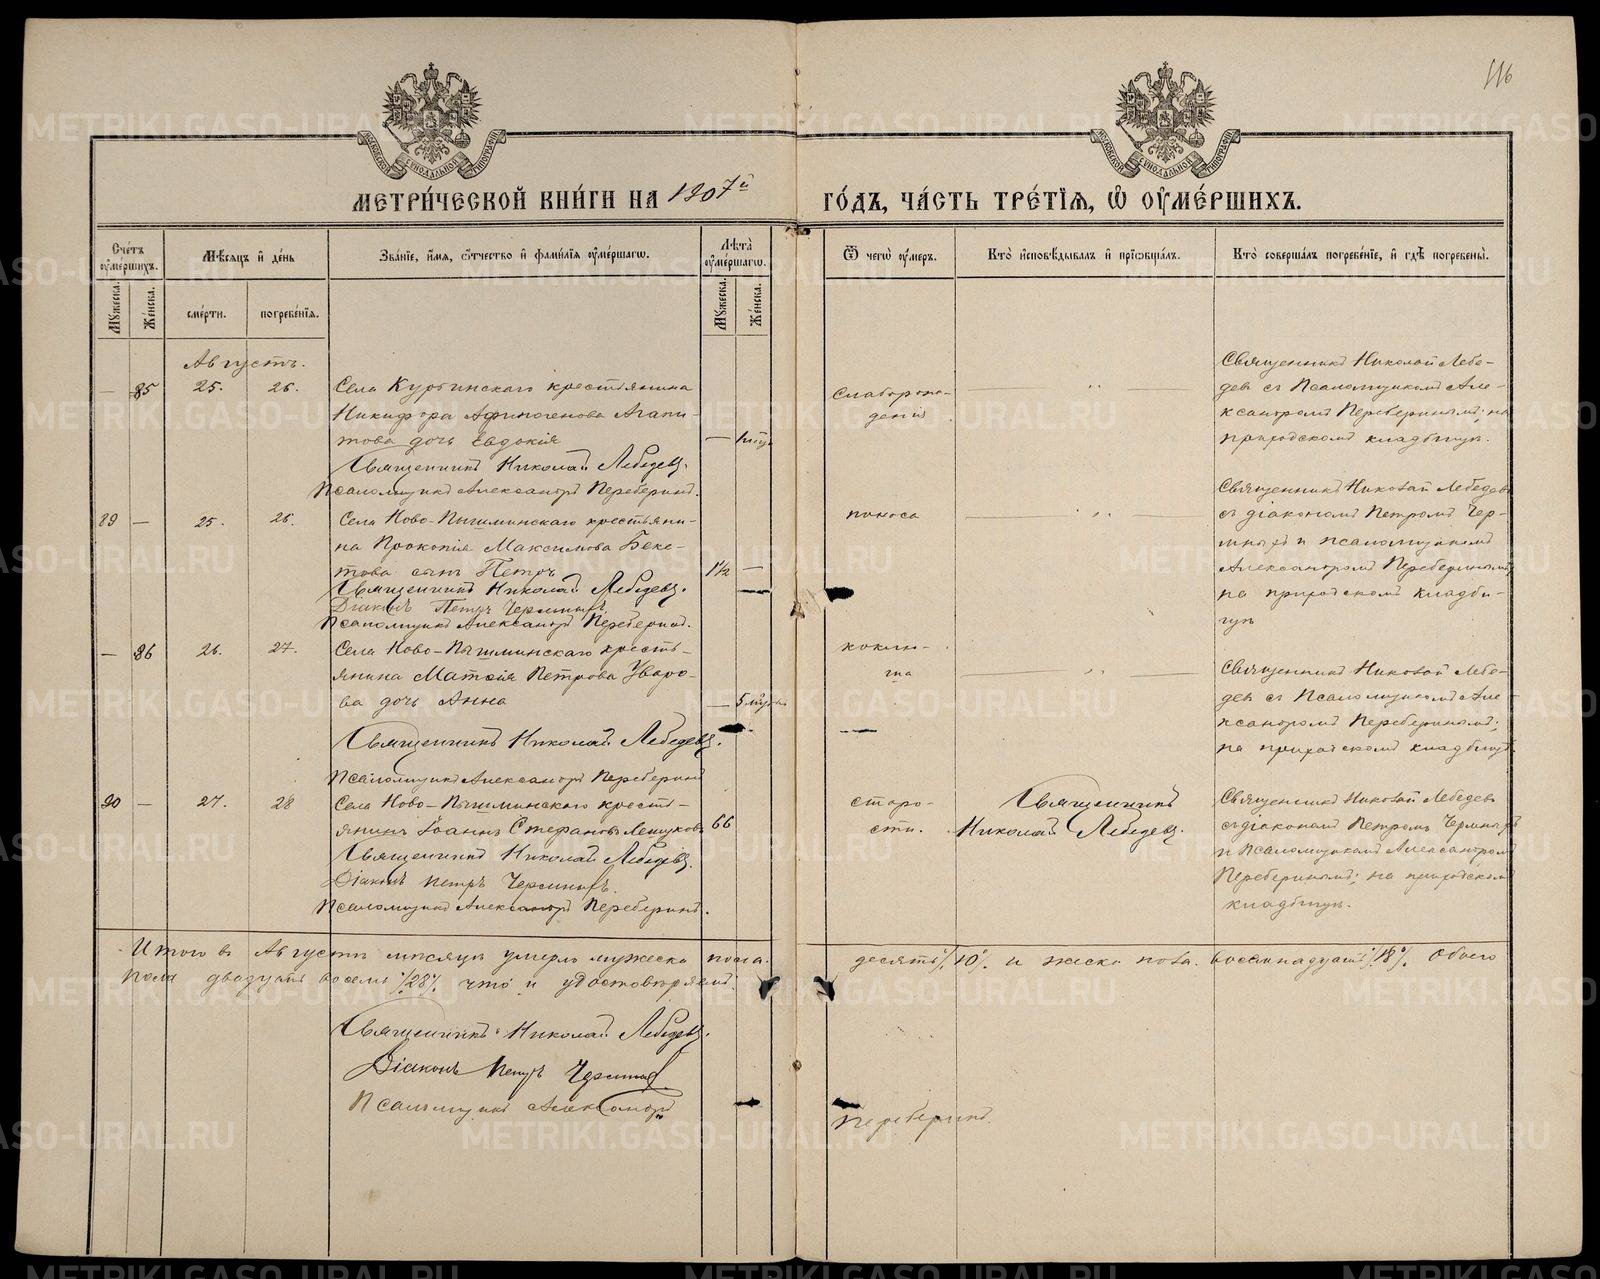 116
МЕТРИ́ЧЕСКОЙ КНИ́ГИ НА 1907й ГО́ДЪ, ЧА́СТЬ ТРЕ́ТІѦ, Ѡ҆ ОУ҆МЕ́РШИХЪ.
Сче́тъ оу҆ме́ршихъ.
Мѣ́сяцъ и҆ де́нь
Зва́ніе, и҆́мя, ѻ҆́тчество и҆ фами́лія оу҆ме́ршагѡ.
Лѣ́та оу҆ме́ршагѡ.
Ѿ чегѡ̀ оу҆́меръ.
Кто̀ и҆сповѣ́дывалъ и҆ прїѡбща́лъ.
Кто̀ соверша́лъ погребе́ніе, и҆ гдѣ̀ погребены̀.
Му́жеска.
Же́нска.
сме́рти.
погребе́нія.
Му́жеска.
Же́нска.
Августъ.
— 85 25. 26.
Села Курьинскаго крестьянина
Никифора Афиногенова Агапи-
това дочь Евдокія
Священникъ Николай Лебедевъ.
Псаломщикъ Александръ Переберинъ.
слаборож-
денія
Священникъ Николай Лебе-
девъ съ Псаломщикомъ Але-
ксандромъ Переберинымъ; на
приходскомъ кладбищѣ.
89 — 25. 26.
Села Ново-Пышминскаго крестьяни-
на Прокопія Максимова Беке-
това сынъ Петръ
1½ —
Священникъ Николай Лебедевъ.
Діаконъ Петръ Черемныхъ.
Псаломщикъ Александръ Переберинъ.
поноса
Священникъ Николай Лебедевъ
съ діакономъ Петромъ Чер-
мныхъ и псаломщикомъ
Александромъ Переберинымъ;
на приходскомъ кладби-
щѣ
— 86 26. 27.
Села Ново-Пышминскаго кресть-
янина Матѳія Петрова Уваро-
ва дочь Анна
— 5 мѣс
Священникъ Николай Лебедевъ.
Псаломщикъ Александръ Переберинъ
коклю-
ша
Священникъ Николай Лебе-
девъ съ Псаломщикомъ Але-
ксандромъ Переберинымъ;
на приходскомъ кладбищѣ.
90 — 27. 28
Села Ново-Пышминскаго кресть-
янинъ Іоаннъ Стефановъ Лешуковъ
66
Священникъ Николай Лебедевъ.
Діаконъ Петръ Черемныхъ.
Псаломщикъ Александръ Переберинъ.
старо-
сти.
Священникъ
Николай Лебедевъ.
Священникъ Николай Лебедевъ
съ діакономъ Петромъ Чермныхъ
и Псаломщикомъ Александромъ
Переберинымъ; на приходскомъ
кладбищѣ.
Итого въ Августѣ мѣсяцѣ умерло мужеска пола. десять /10/. и женска пола. восемнадцать /18/. Обоего
пола двадцать восемь /28/. что и удостовѣряемъ.
Священникъ Николай Лебедевъ.
Діаконъ Петръ Черемныхъ.
Псаломщикъ Александръ Переберинъ.
METRIKI.GASO-URAL.RU